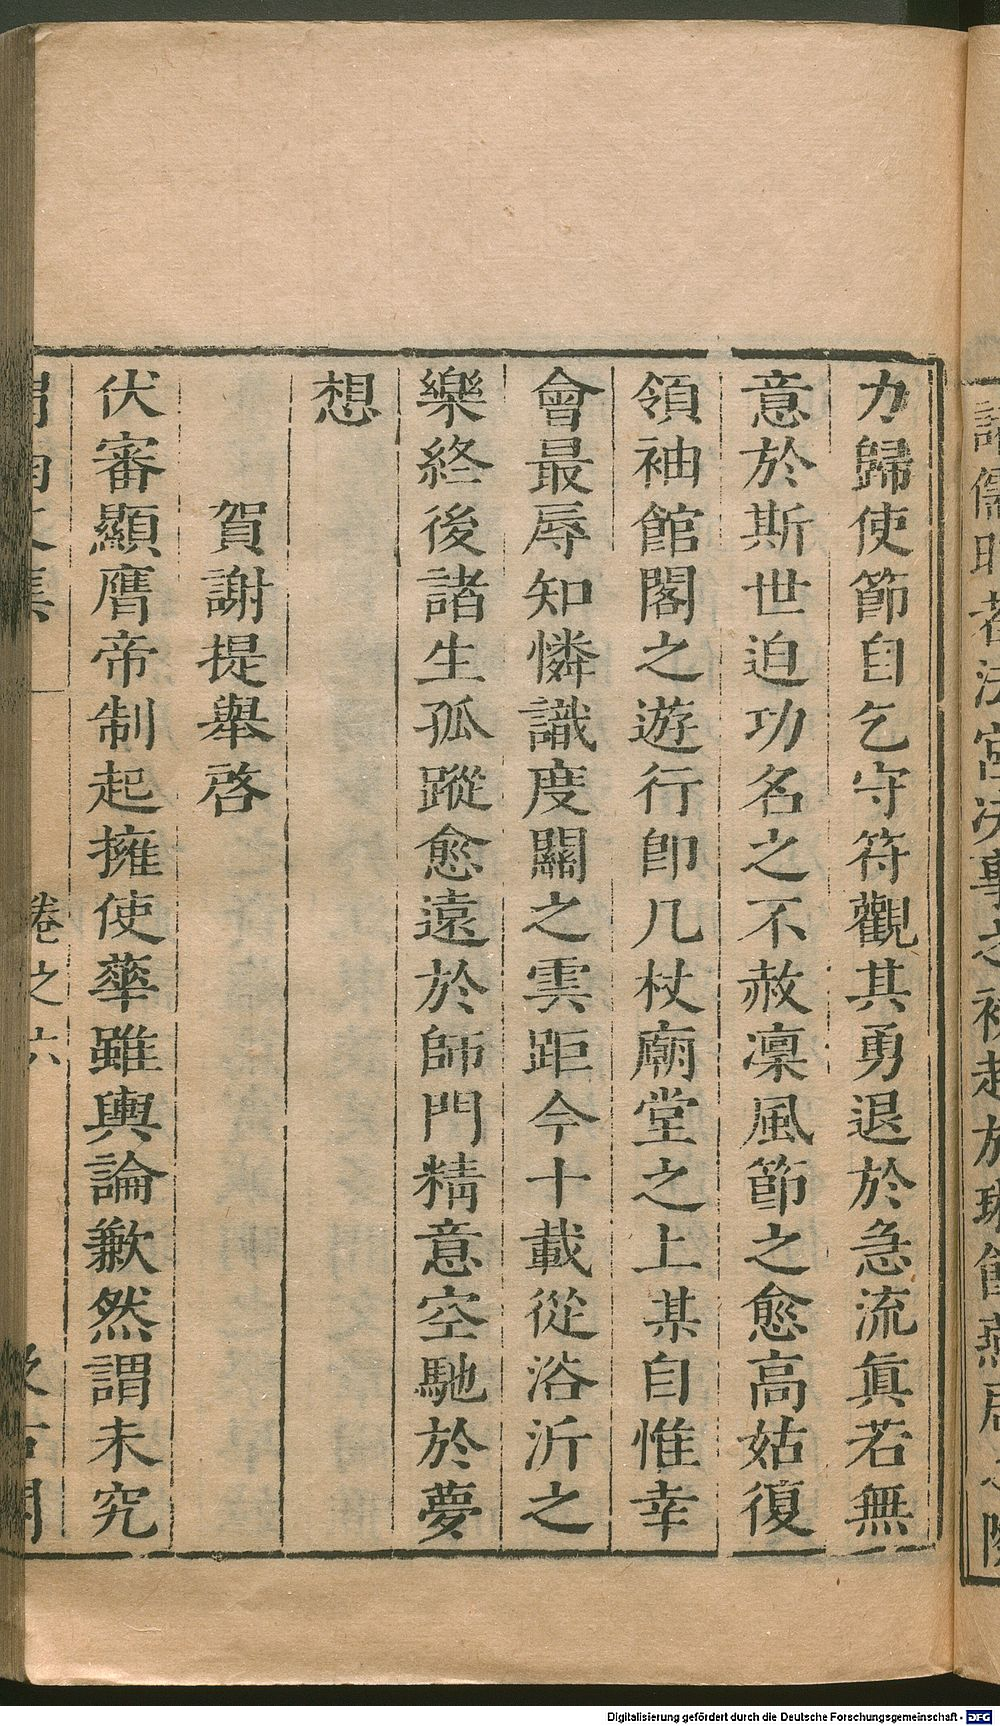 力歸使節自乞守符觀其勇退於急流眞若無
意於斯世迫功名之不赦凜風節之愈高姑復
領袖館閣之遊行卽几杖廟堂之上某自惟幸
會最辱知憐識度關之雲距今十載從浴沂之
樂終後諸生孤蹤愈遠於師門精意空馳於夢
想
賀謝提舉啓
伏審顯膺帝制起擁使華雖輿論歉然謂未究
卷之六
Digitalisierung gefördert durch die Deutsche Forschungsgemeinschaft - DFG